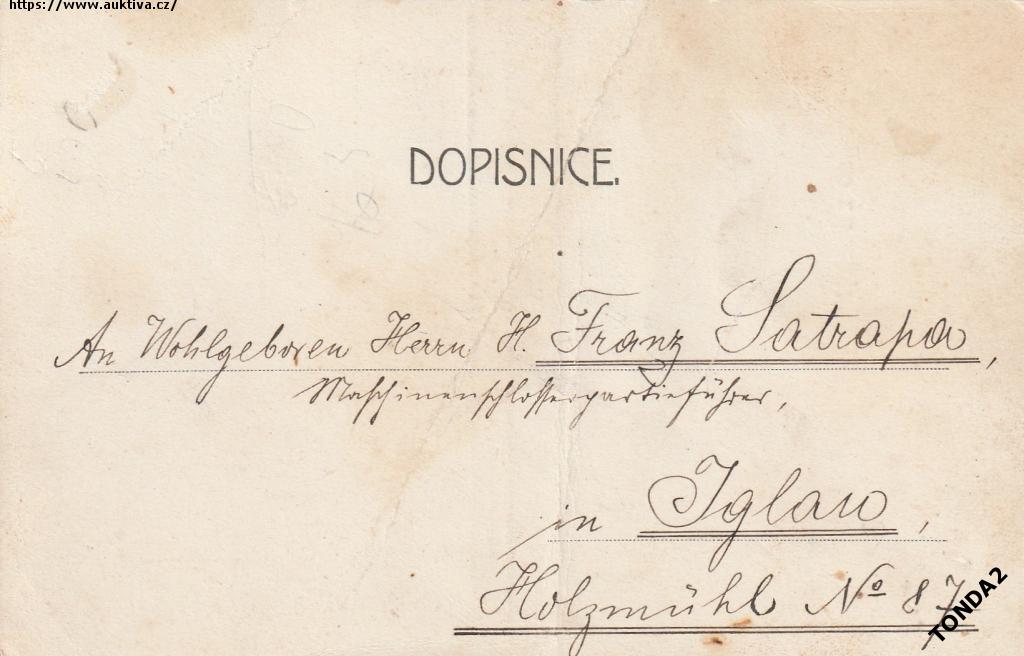 https://www.auktiva.cz/
DOPISNICE.
An Wohlgeboren Herrn H. Franz Satrapa,
Maschinenschlosserpartieführer,
in Iglau,
Holzmühl No 87
TONDA2